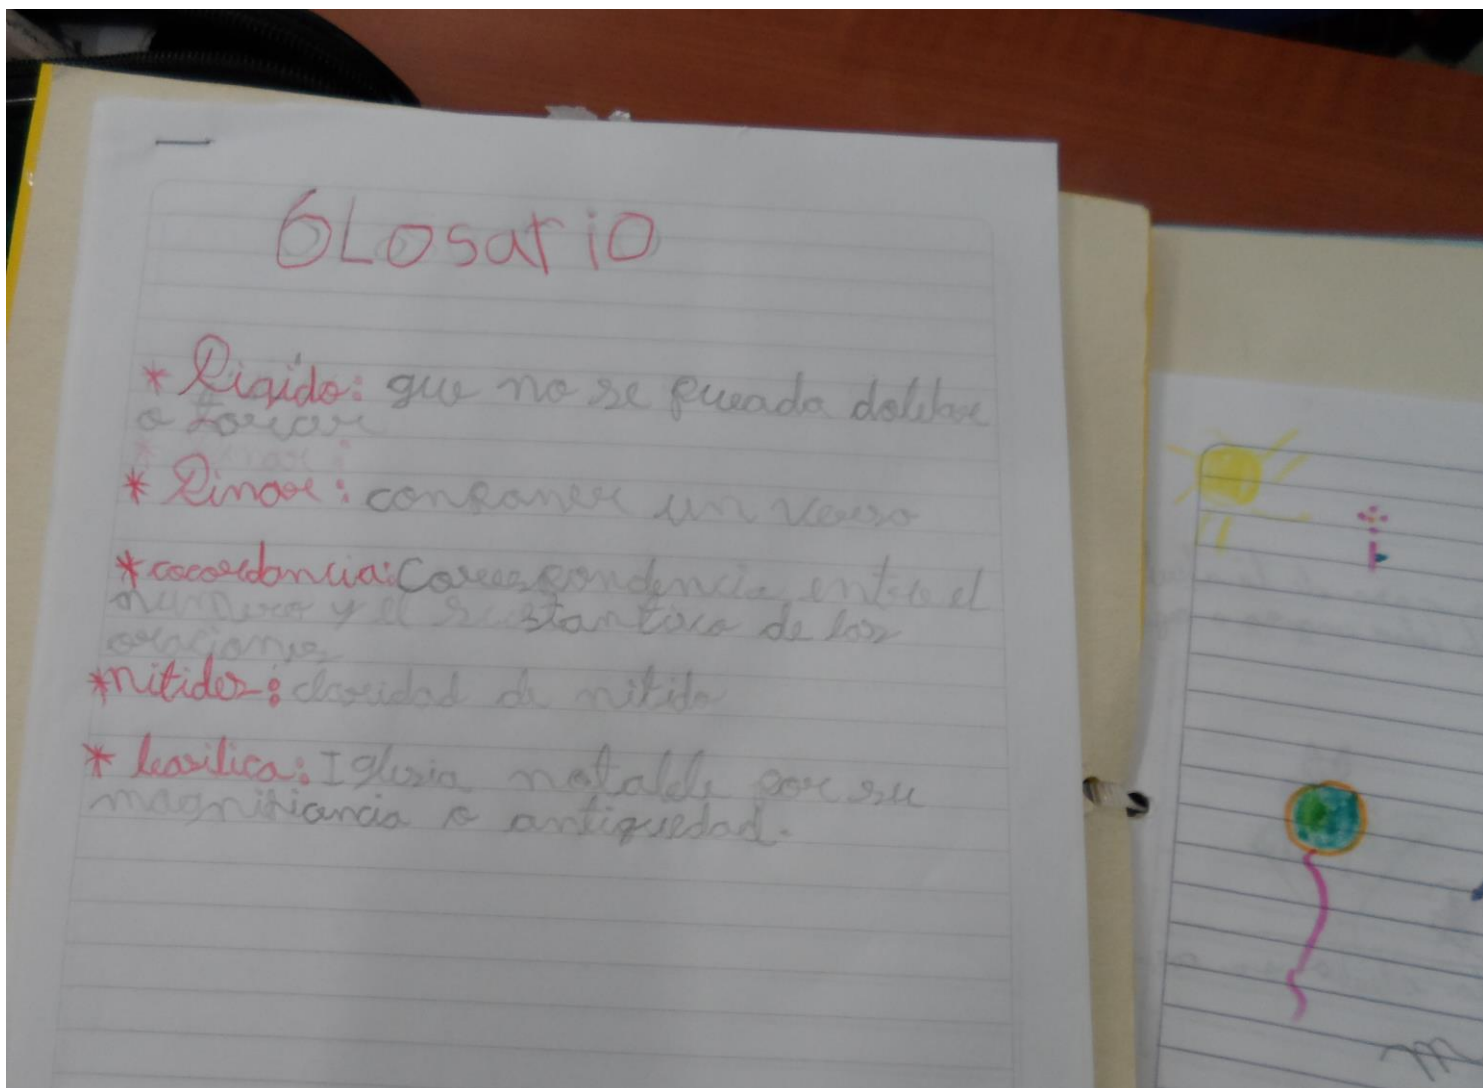 GLosario
* Rigido: que no se pueada doblar
o torcer
* Rimar: componer un verso
* cocordancia: Correspondencia entre el
numero y el sustantivo de las
oraciones
* nitidez: claridad de nitido
* basilica: Iglesia notable por su
magnificancia o antiguedad.